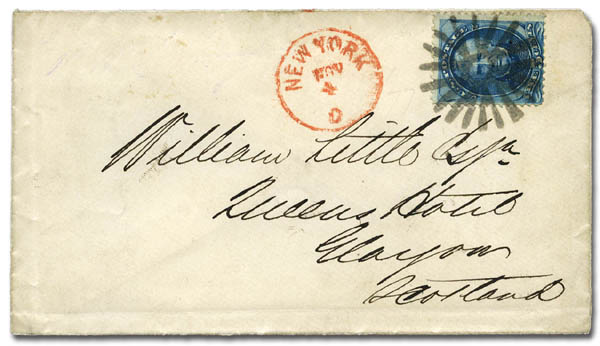 NEW YORK
NOV
4
D
William Little Esqr
Queens Hotel
Glasgow
Scotland